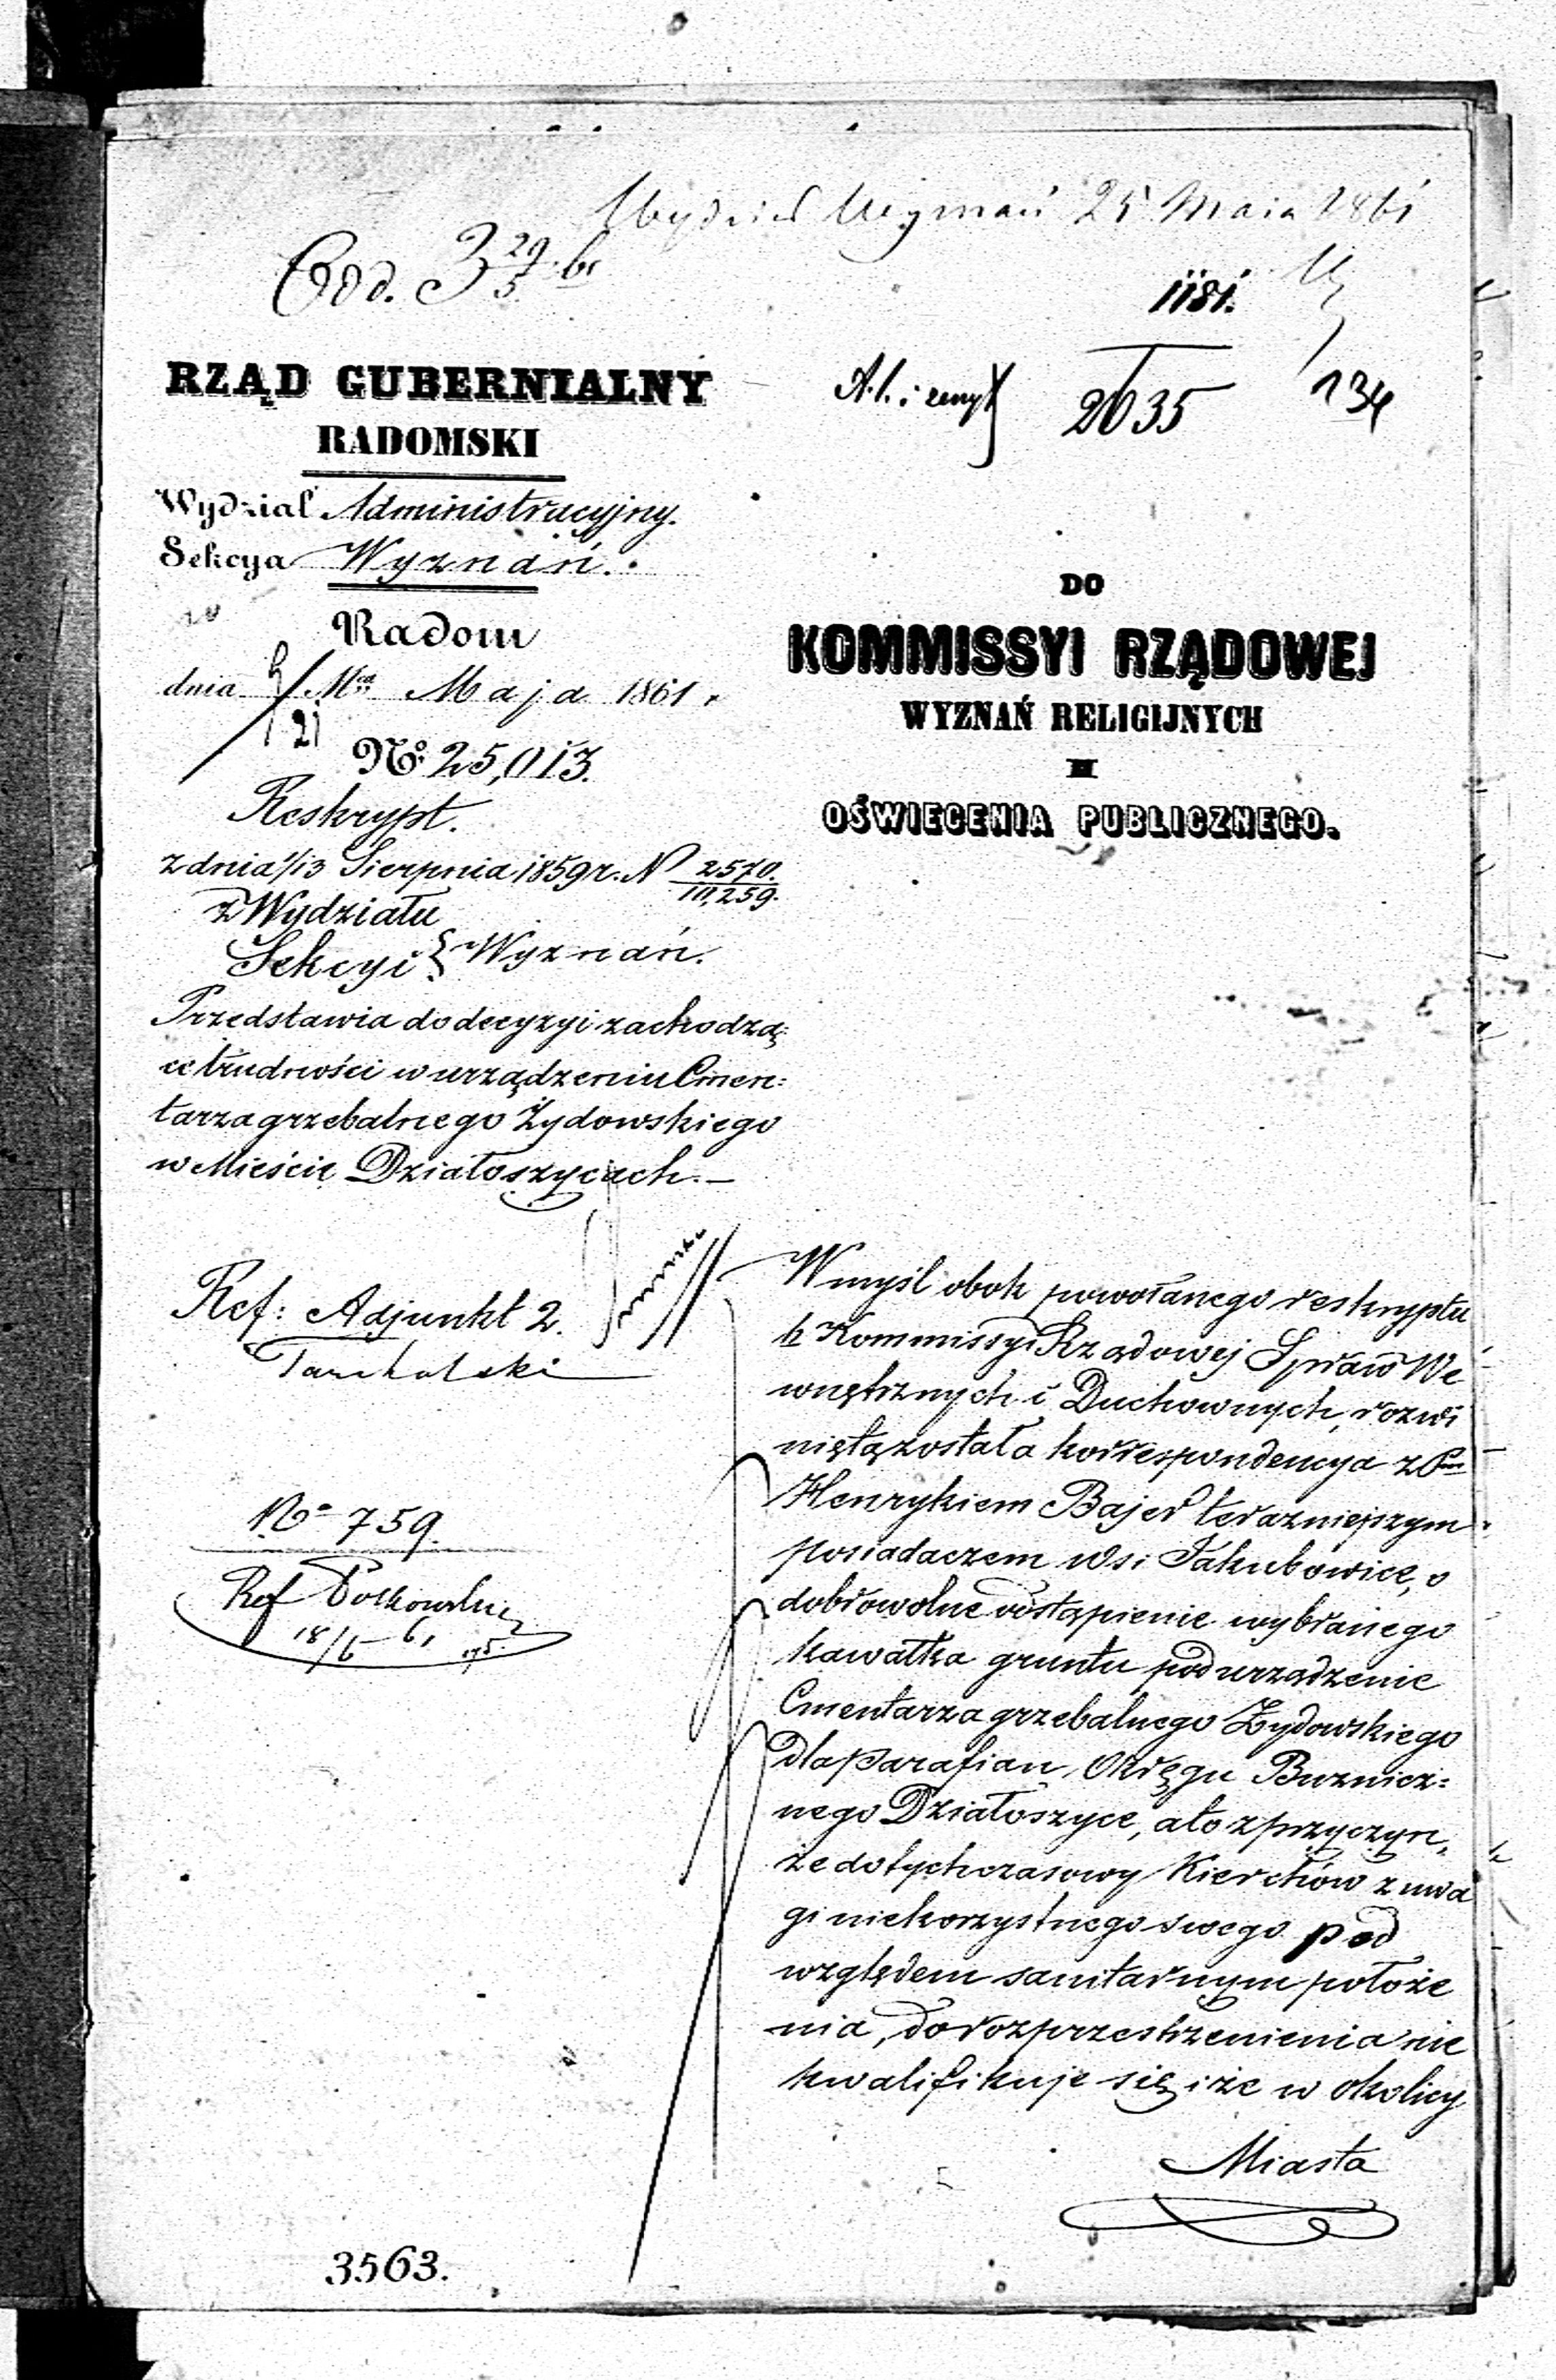 25 Maja 1861
1181.
2635
134
RZĄD GUBERNIALNY
RADOMSKI
Wydział Administracyjny.
Sekcya Wyznań.
Radom
dnia 9/21 Mca Maja 1861 r.
No. 25,013.
Reskrypt.
z dnia 1/13 Sierpnia 1859 r. N 2570./10,259.
z Wydziału
Sekcyi } Wyznań.
Przedstawia do decyzyi zachodzą:
ce trudności w urządzeniu Cmen:
tarza grzebalnego Żydowskiego
w Mieście Działoszycach.—
Ref: Adjunkt 2.
No 759.
Ref
18/6 61
3563.
DO
KOMMISSYI RZĄDOWEJ
WYZNAŃ RELIGIJNYCH
I
OŚWIECENIA PUBLICZNEGO.
W myśl obok powołanego reskryptu
b Kommissyi Rządowej Spraw We
wnętrznych i Duchownych, rozwi
niętą została korrespondencya z Pm
Henrykiem Bajer teraźniejszym
posiadaczem wsi Jakubowice, o
dobrowolne odstąpienie wybranego
kawałka gruntu pod urządzenie
Cmentarza grzebalnego Żydowskiego
dla parafian Okręgu Bużnicz:
nego Działoszyce, a to z przyczyn,
że dotychczasowy Kierchów z uwa
gi niekorzystnego swego pod
względem sanitarnym położe
nia, do rozprzestrzenienia nie
kwalifikuje się i że w okolicy
Miasta